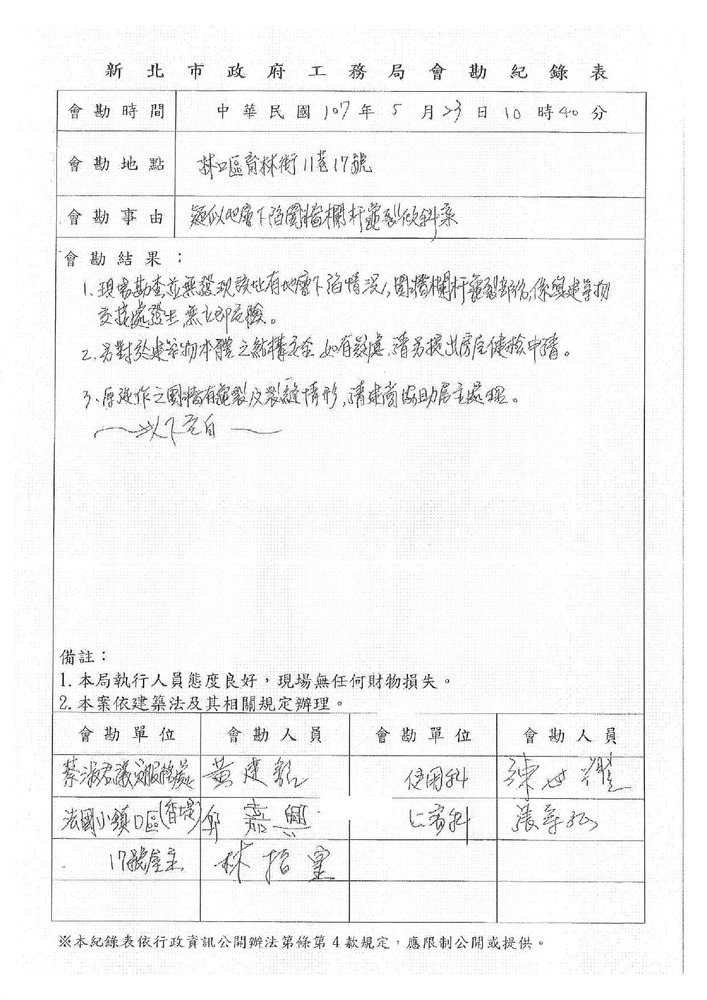 新北市政府工務局會勘紀錄表
會勘時間 中華民國107年5月23日10時40分
會勘地點 林口區育林街11巷17號
會勘事由 疑似地層下陷圍牆欄杆龜裂傾斜案
會勘結果：
1、現場勘查並無發現該址有地層下陷情況，圍牆欄杆龜裂部份，係與建築物
交接處發生，無立即危險。
2、另對於建築物本體之結構安全如有疑慮，請另提出房屋健檢申請。
3、原施作之圍牆有龜裂及裂縫情形，請建商協助屋主處理。
～以下空白～
備註：
1.本局執行人員態度良好，現場無任何財物損失。
2.本案依建築法及其相關規定辦理。
會勘單位 會勘人員 會勘單位 會勘人員
蔡淑君議員服務處 黃建 使用科 陳世
法國小鎮D區(香堤) 邱嘉興 公寓科 張
17號屋主 林
※本紀錄表依行政資訊公開辦法第條第4款規定，應限制公開或提供。